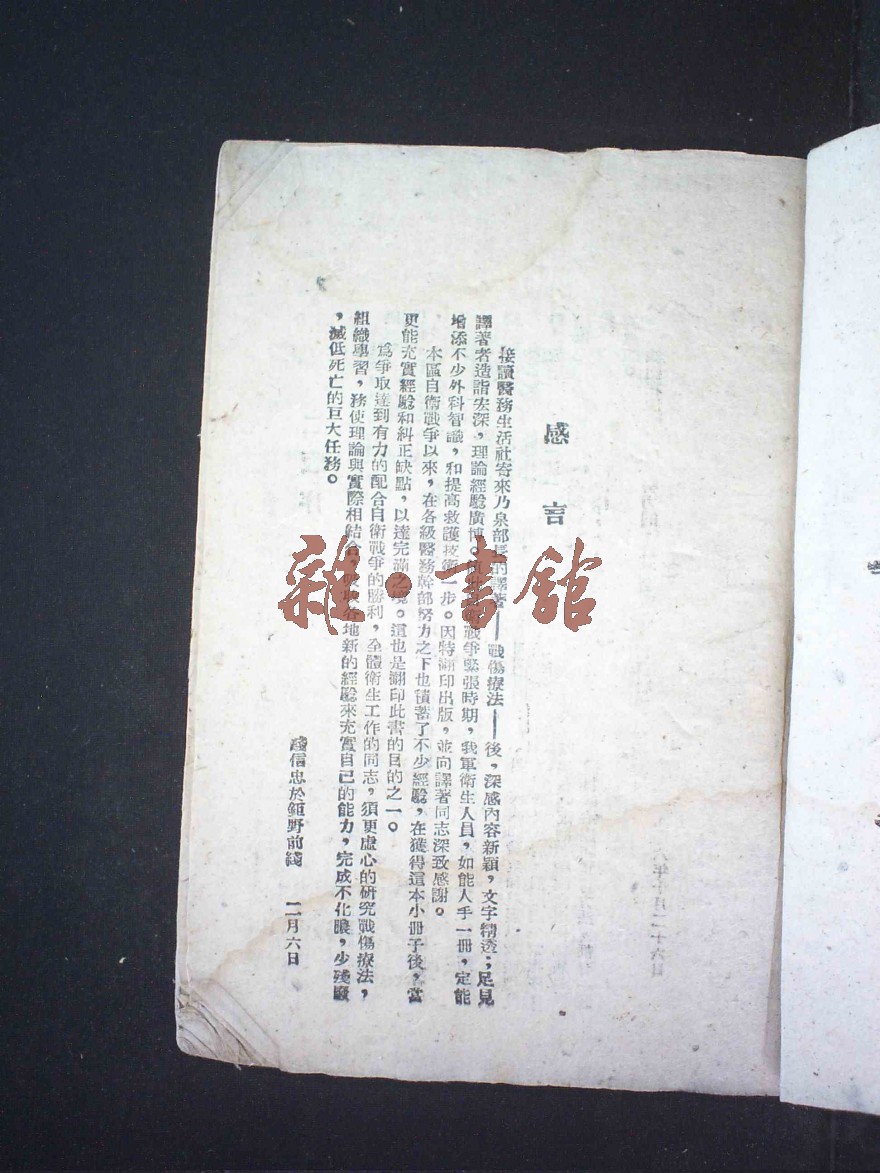 感言
接讀醫務生活社寄來乃泉部長的譯著——戰傷療法——後，深感內容新穎，文字精透；足見
譯著者造詣宏深，理論經驗廣博。戰爭緊張時期，我軍衛生人員，如能人手一冊，定能
增添不少外科智識，和提高救護技術一步。因特翻印出版，並向譯著同志深致感謝。
本區自衛戰爭以來，在各級醫務幹部努力之下也積蓄了不少經驗，在獲得這本小冊子後，當
更能充實經驗和糾正缺點，以達完滿之境。這也是翻印此書的目的之一。
爲爭取達到有力的配合自衛戰爭的勝利，全體衛生工作的同志，須更虛心的研究戰傷療法，
組織學習，務使理論與實際相結合，各地新的經驗來充實自己的能力，完成不化膿，少殘廢
，減低死亡的巨大任務。
錢信忠於鉅野前綫 二月六日
雜·書館
六年十月二十六日